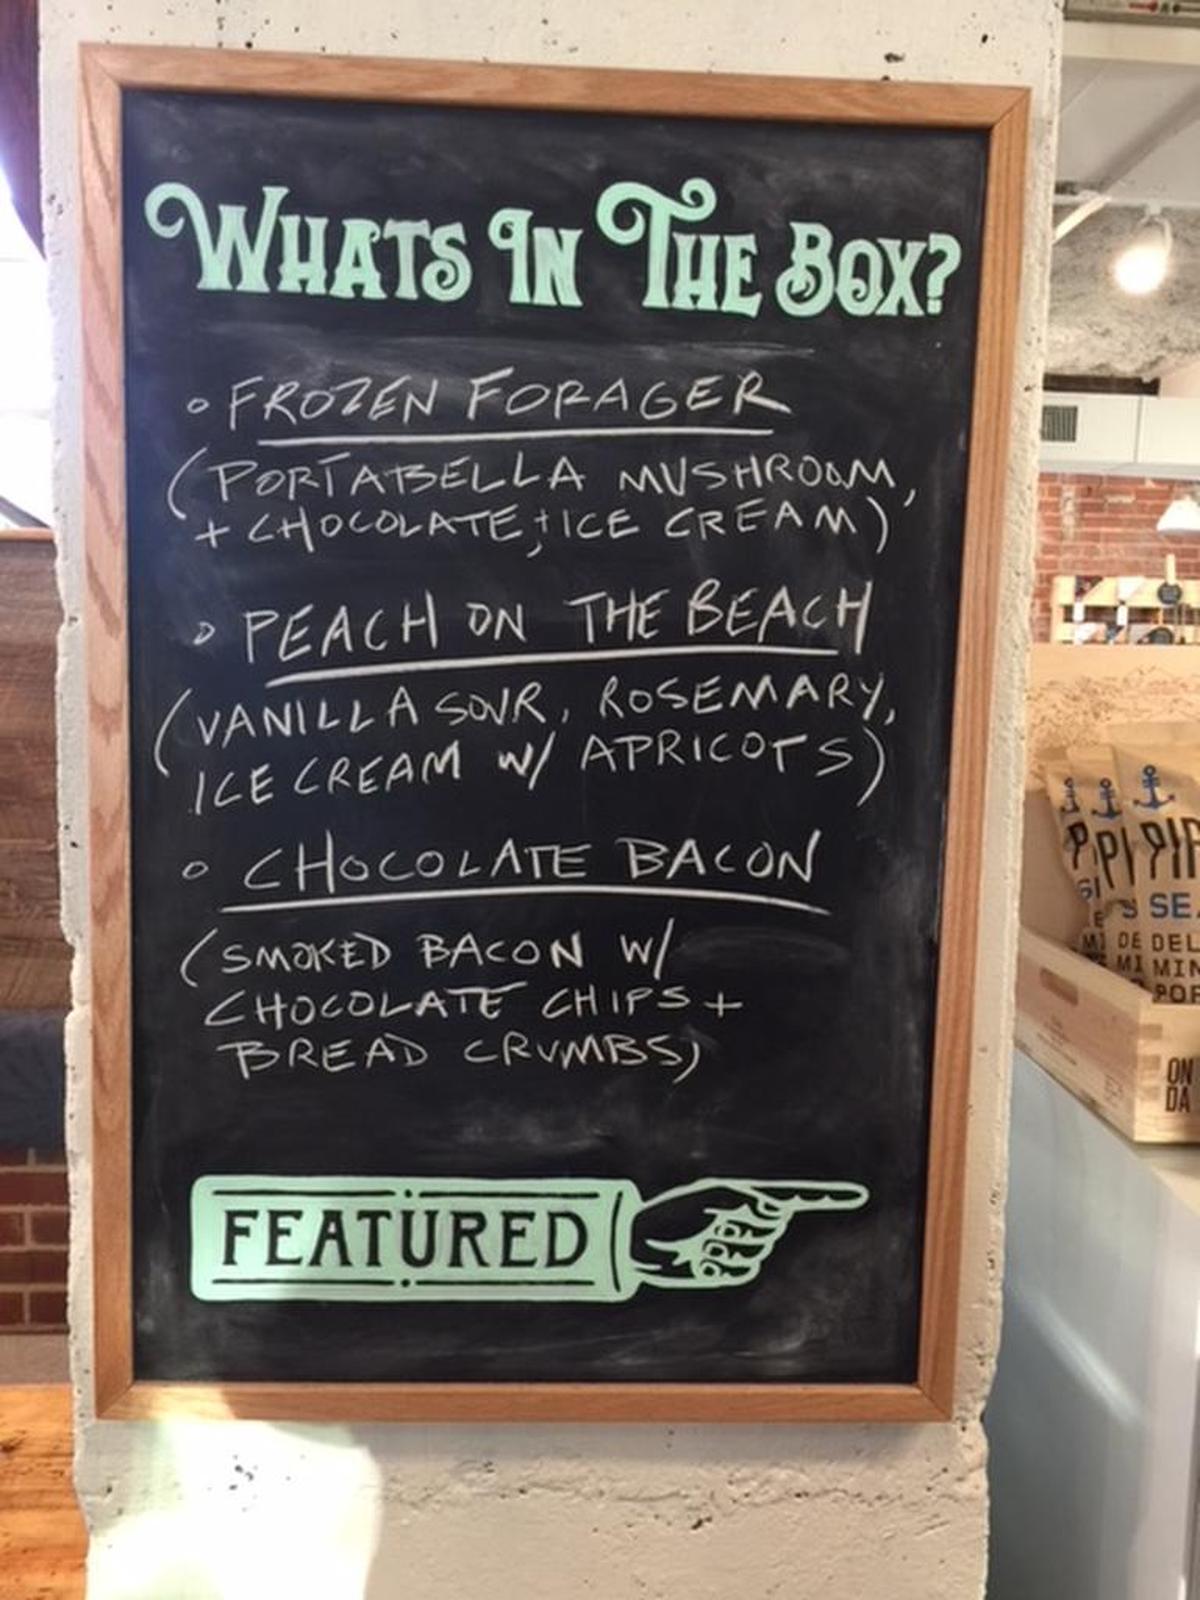 WHATS IN THE BOX?
FROZEN FORAGER
(PORTABELLA MUSHROOM,
+ CHOCOLATE, + ICE CREAM)
PEACH ON THE BEACH
(VANILLA SOUR, ROSEMARY,
ICE CREAM W/ APRICOTS)
CHOCOLATE BACON
(SMOKED BACON W/
CHOCOLATE CHIPS +
BREAD CRUMBS)
FEATURED
ON
DA